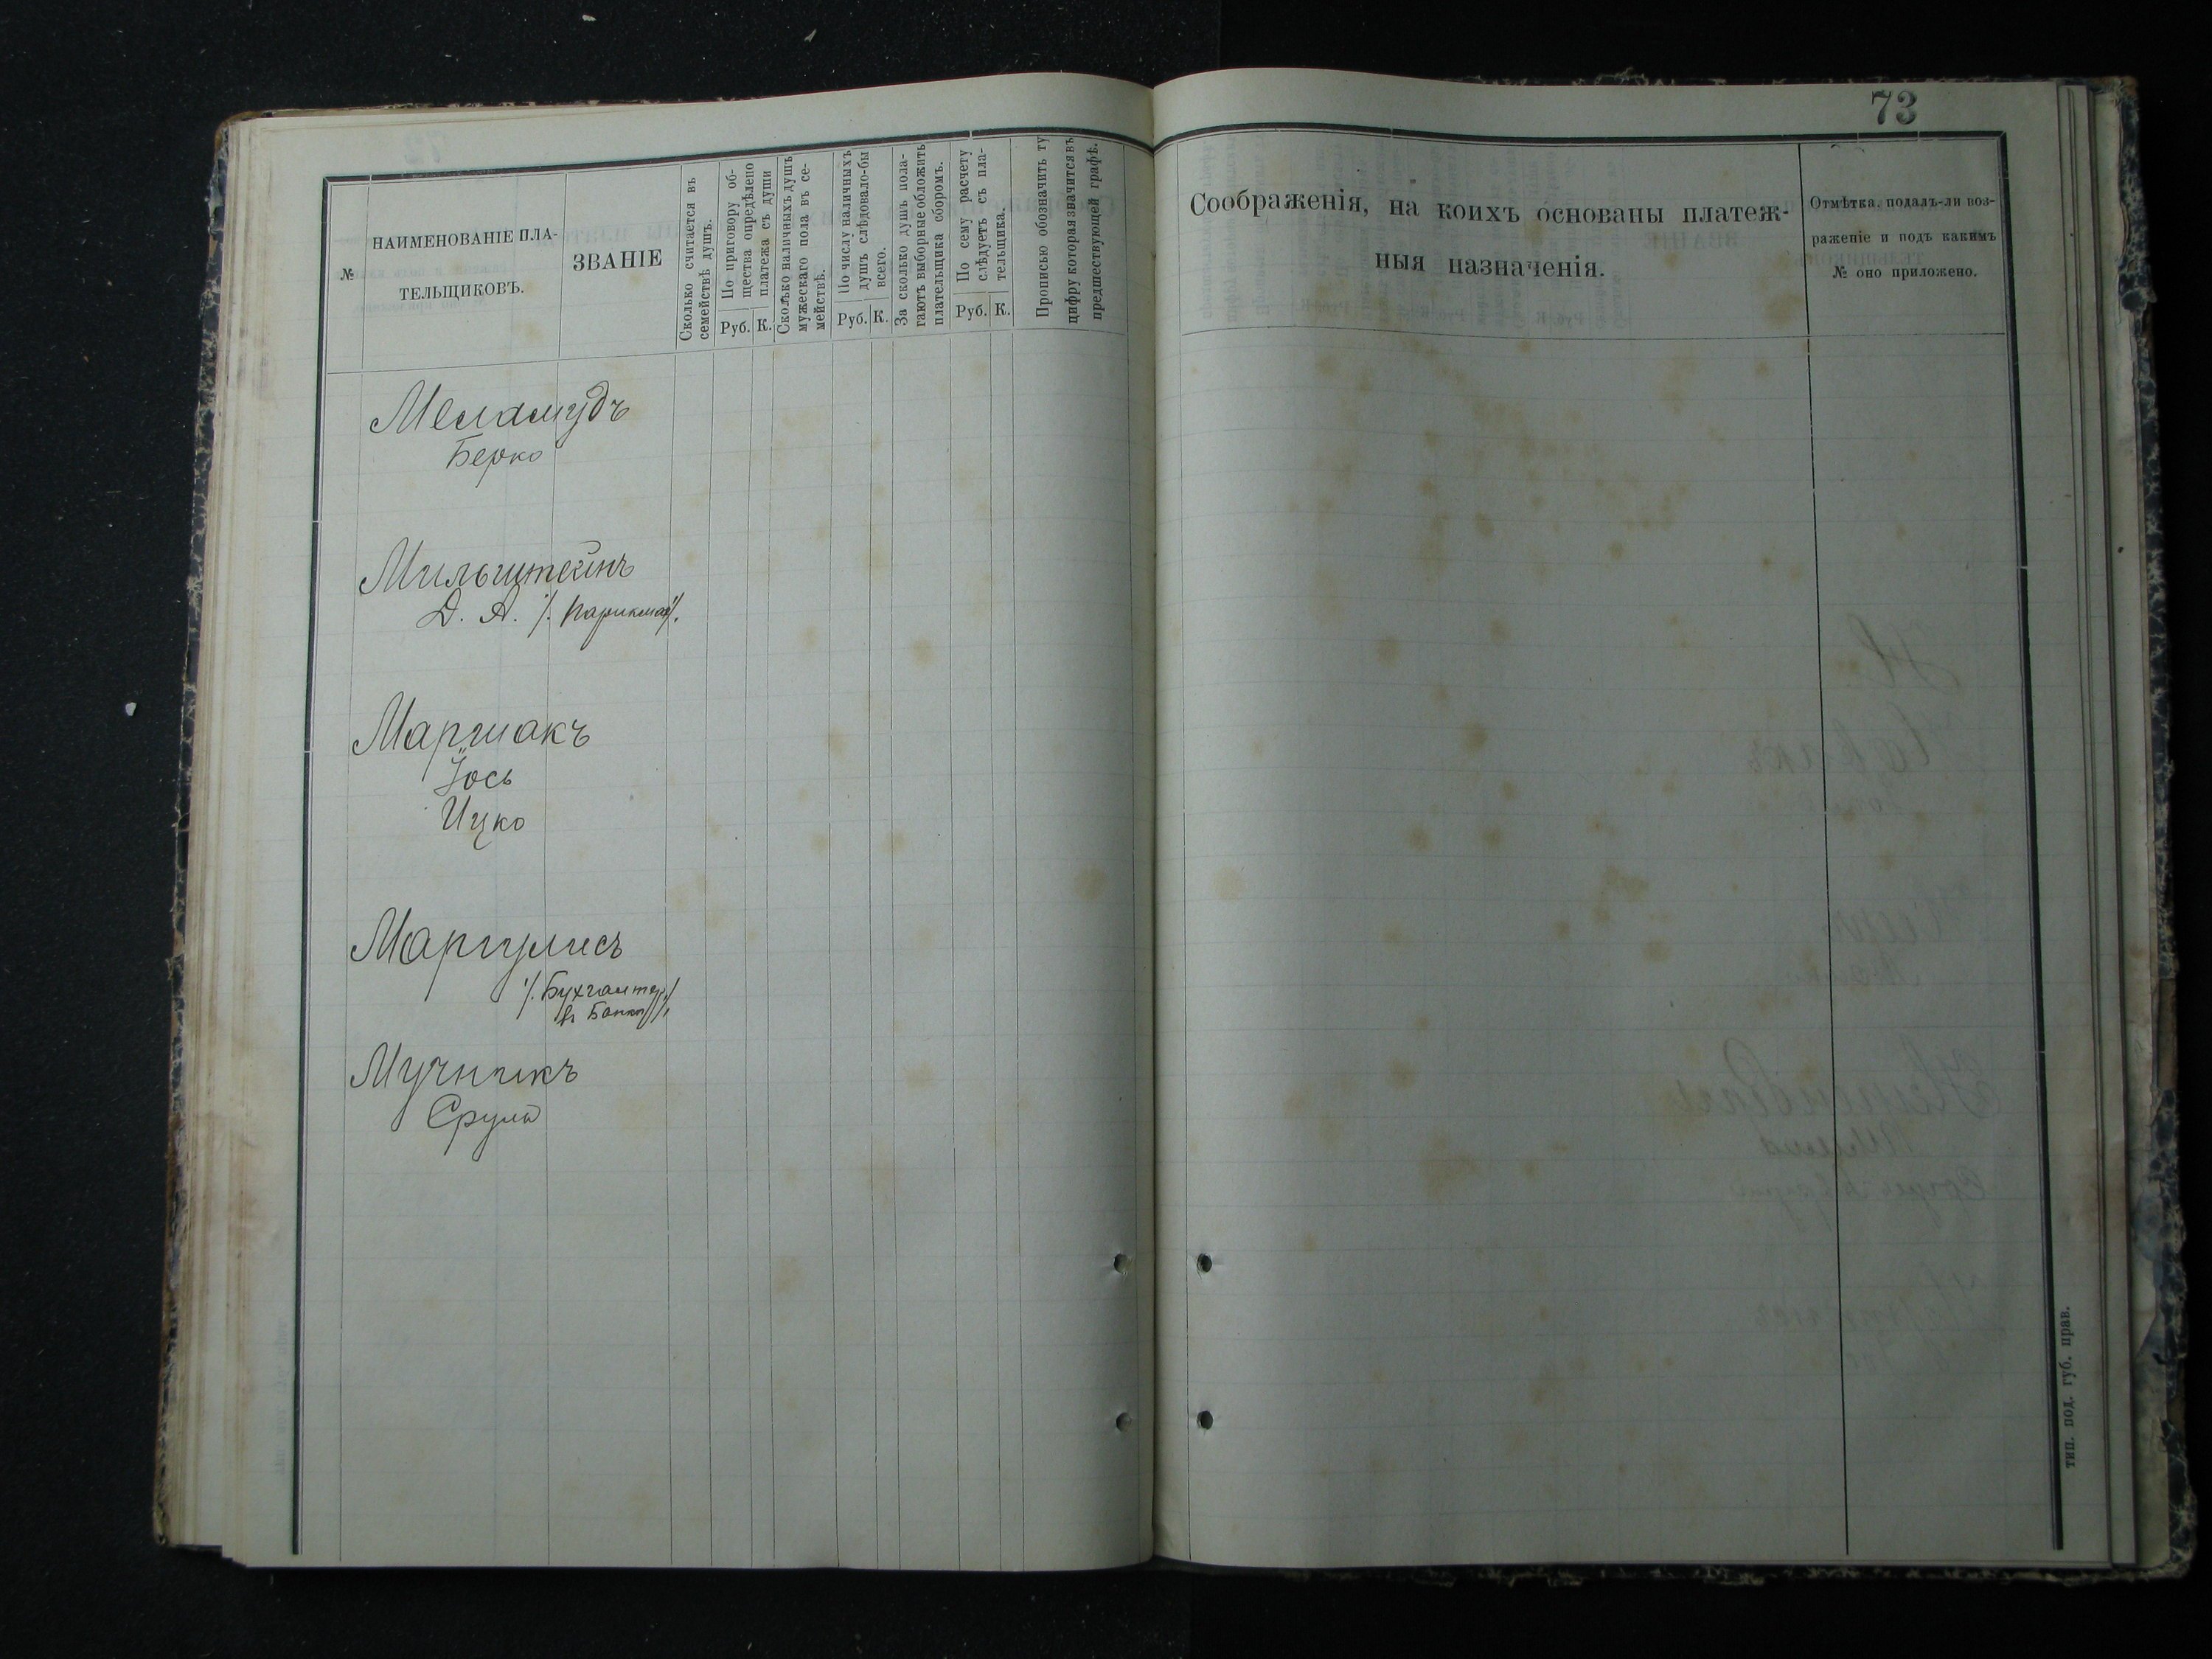 73
№
НАИМЕНОВАНІЕ ПЛА-
ТЕЛЬЩИКОВЪ.
ЗВАНІЕ
Сколько считается въ
семействѣ душъ.
По приговору об-
щества опредѣлено
платежа съ души
Руб. К.
Сколько наличныхъ душъ
мужескаго пола въ се-
мействѣ.
По числу наличныхъ
душъ слѣдовало-бы
всего.
Руб. К.
За сколько душъ пола-
гаютъ выборные обложить
плательщика сборомъ.
По сему расчету
слѣдуетъ съ пла-
тельщика.
Руб. К.
Прописью обозначить ту
цифру которая значится въ
предшествующей графѣ.
Соображенія, на коихъ основаны платеж-
ныя назначенія.
Отмѣтка, подалъ-ли воз-
раженіе и подъ какимъ
№ оно приложено.
Меламудъ
Берко
Мильштейнъ
Д. А. /. Парикмах/.
Маршакъ
Іось
Ицко
Маргулисъ
/. Бухгалтер
въ Банкѣ/.
Мучникъ
Сруль
тип. под. губ. прав.